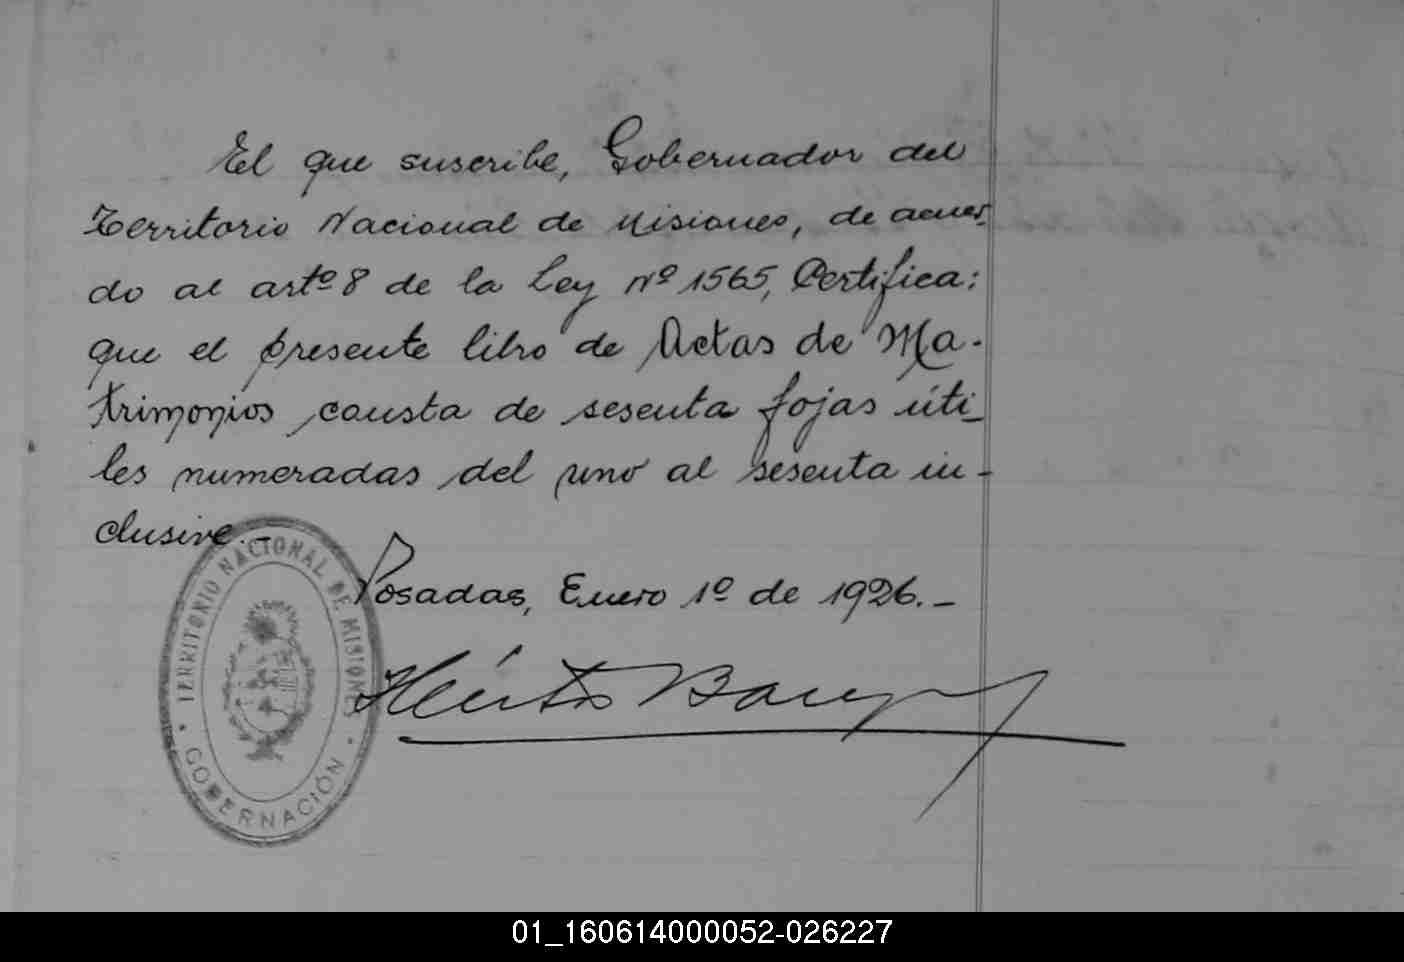 El que suscribe, Gobernador del
Territorio Nacional de Misiones, de acuer-
do al artº 8 de la Ley Nº 1565, Certifica:
que el presente libro de Actas de Ma-
trimonios consta de sesenta fojas úti-
les numeradas del uno al sesenta in-
clusive.-
Posadas, Enero 1º de 1926.-
Héctor Barreyro
TERRITORIO NACIONAL DE MISIONES
GOBERNACIÓN
01_160614000052-026227